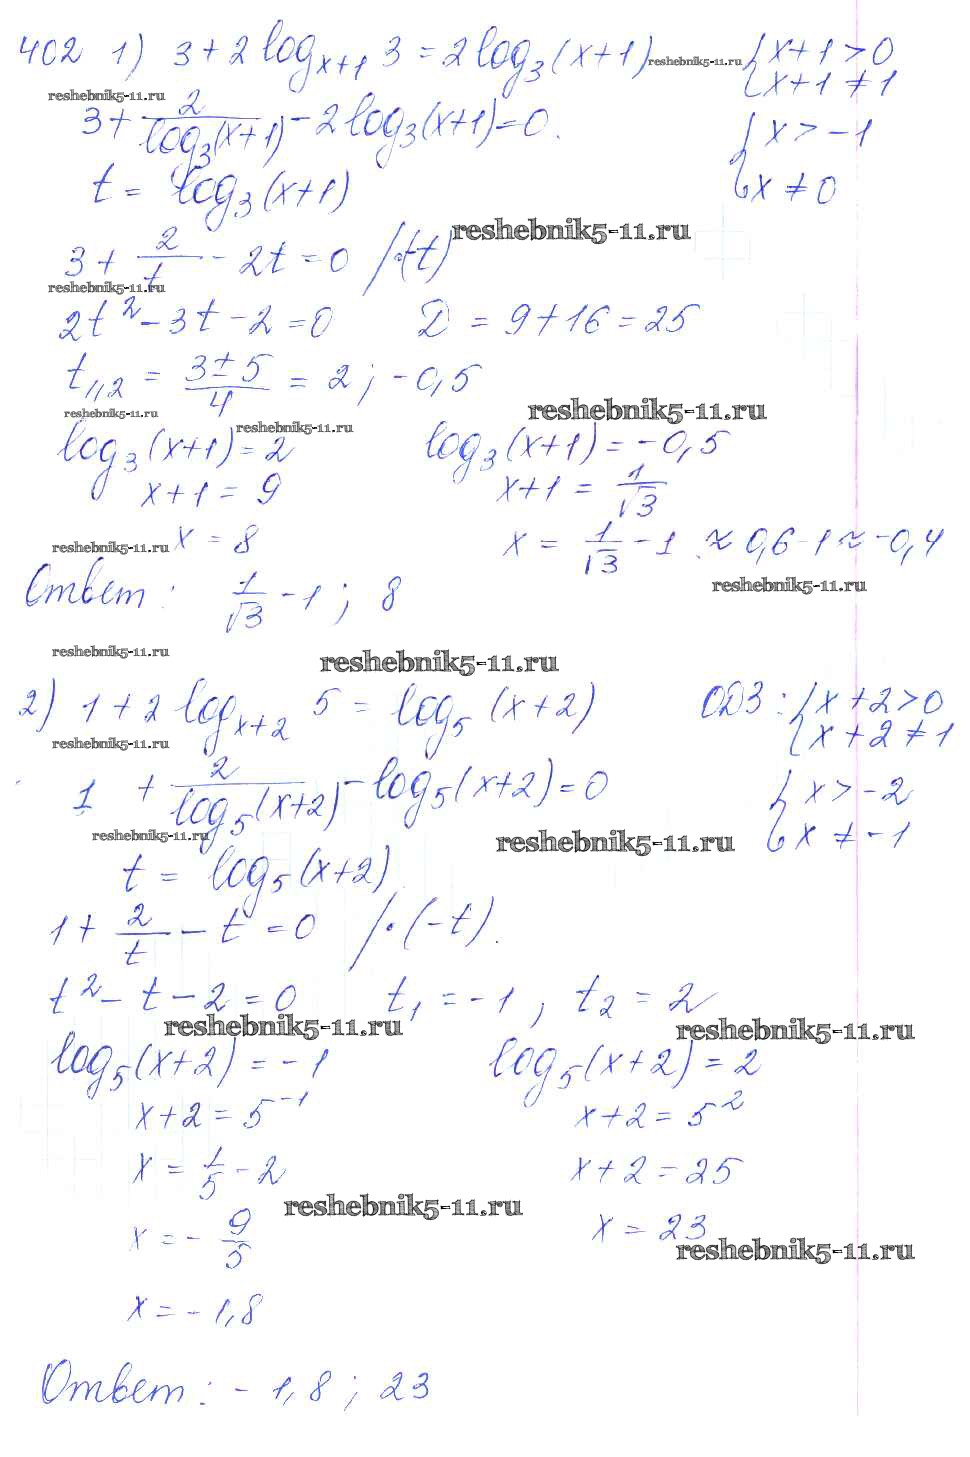 402 1) 3 + 2 log_{x+1} 3 = 2 log_3 (x+1) reshebnik5-11.ru { x+1 > 0
{ x+1 ≠ 1
reshebnik5-11.ru
3 + 2/log_3(x+1) - 2 log_3(x+1) = 0.
{ x > -1
{ x ≠ 0
t = log_3 (x+1)
reshebnik5-11.ru
3 + 2/t - 2t = 0 /·(-t)
reshebnik5-11.ru
2t² - 3t - 2 = 0 D = 9 + 16 = 25
t_{1,2} = (3 ± 5)/4 = 2; -0,5
reshebnik5-11.ru reshebnik5-11.ru reshebnik5-11.ru
log_3 (x+1) = 2 log_3 (x+1) = -0,5
x+1 = 9 x+1 = 1/√3
reshebnik5-11.ru x = 8 x = 1/√3 - 1 ≈ 0,6-1 ≈ -0,4
reshebnik5-11.ru
Ответ: 1/√3 - 1; 8
reshebnik5-11.ru reshebnik5-11.ru
2) 1 + 2 log_{x+2} 5 = log_5 (x+2) ОДЗ: { x+2 > 0
{ x+2 ≠ 1
reshebnik5-11.ru
1 + 2/log_5(x+2) - log_5(x+2) = 0 { x > -2
{ x ≠ -1
reshebnik5-11.ru reshebnik5-11.ru
t = log_5 (x+2)
1 + 2/t - t = 0 /·(-t).
t² - t - 2 = 0 t_1 = -1; t_2 = 2
reshebnik5-11.ru reshebnik5-11.ru
log_5 (x+2) = -1 log_5 (x+2) = 2
x+2 = 5^{-1} x+2 = 5²
x = 1/5 - 2 x+2 = 25
reshebnik5-11.ru
x = - 9/5 x = 23
reshebnik5-11.ru
x = -1,8
Ответ: -1,8; 23